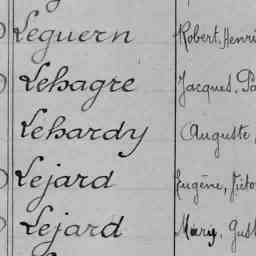 Leguern Robert, Henri
Lehagre Jacques, Pa
Lehardy Auguste,
Lejard Eugène, Victo
Lejard Mary, Gust